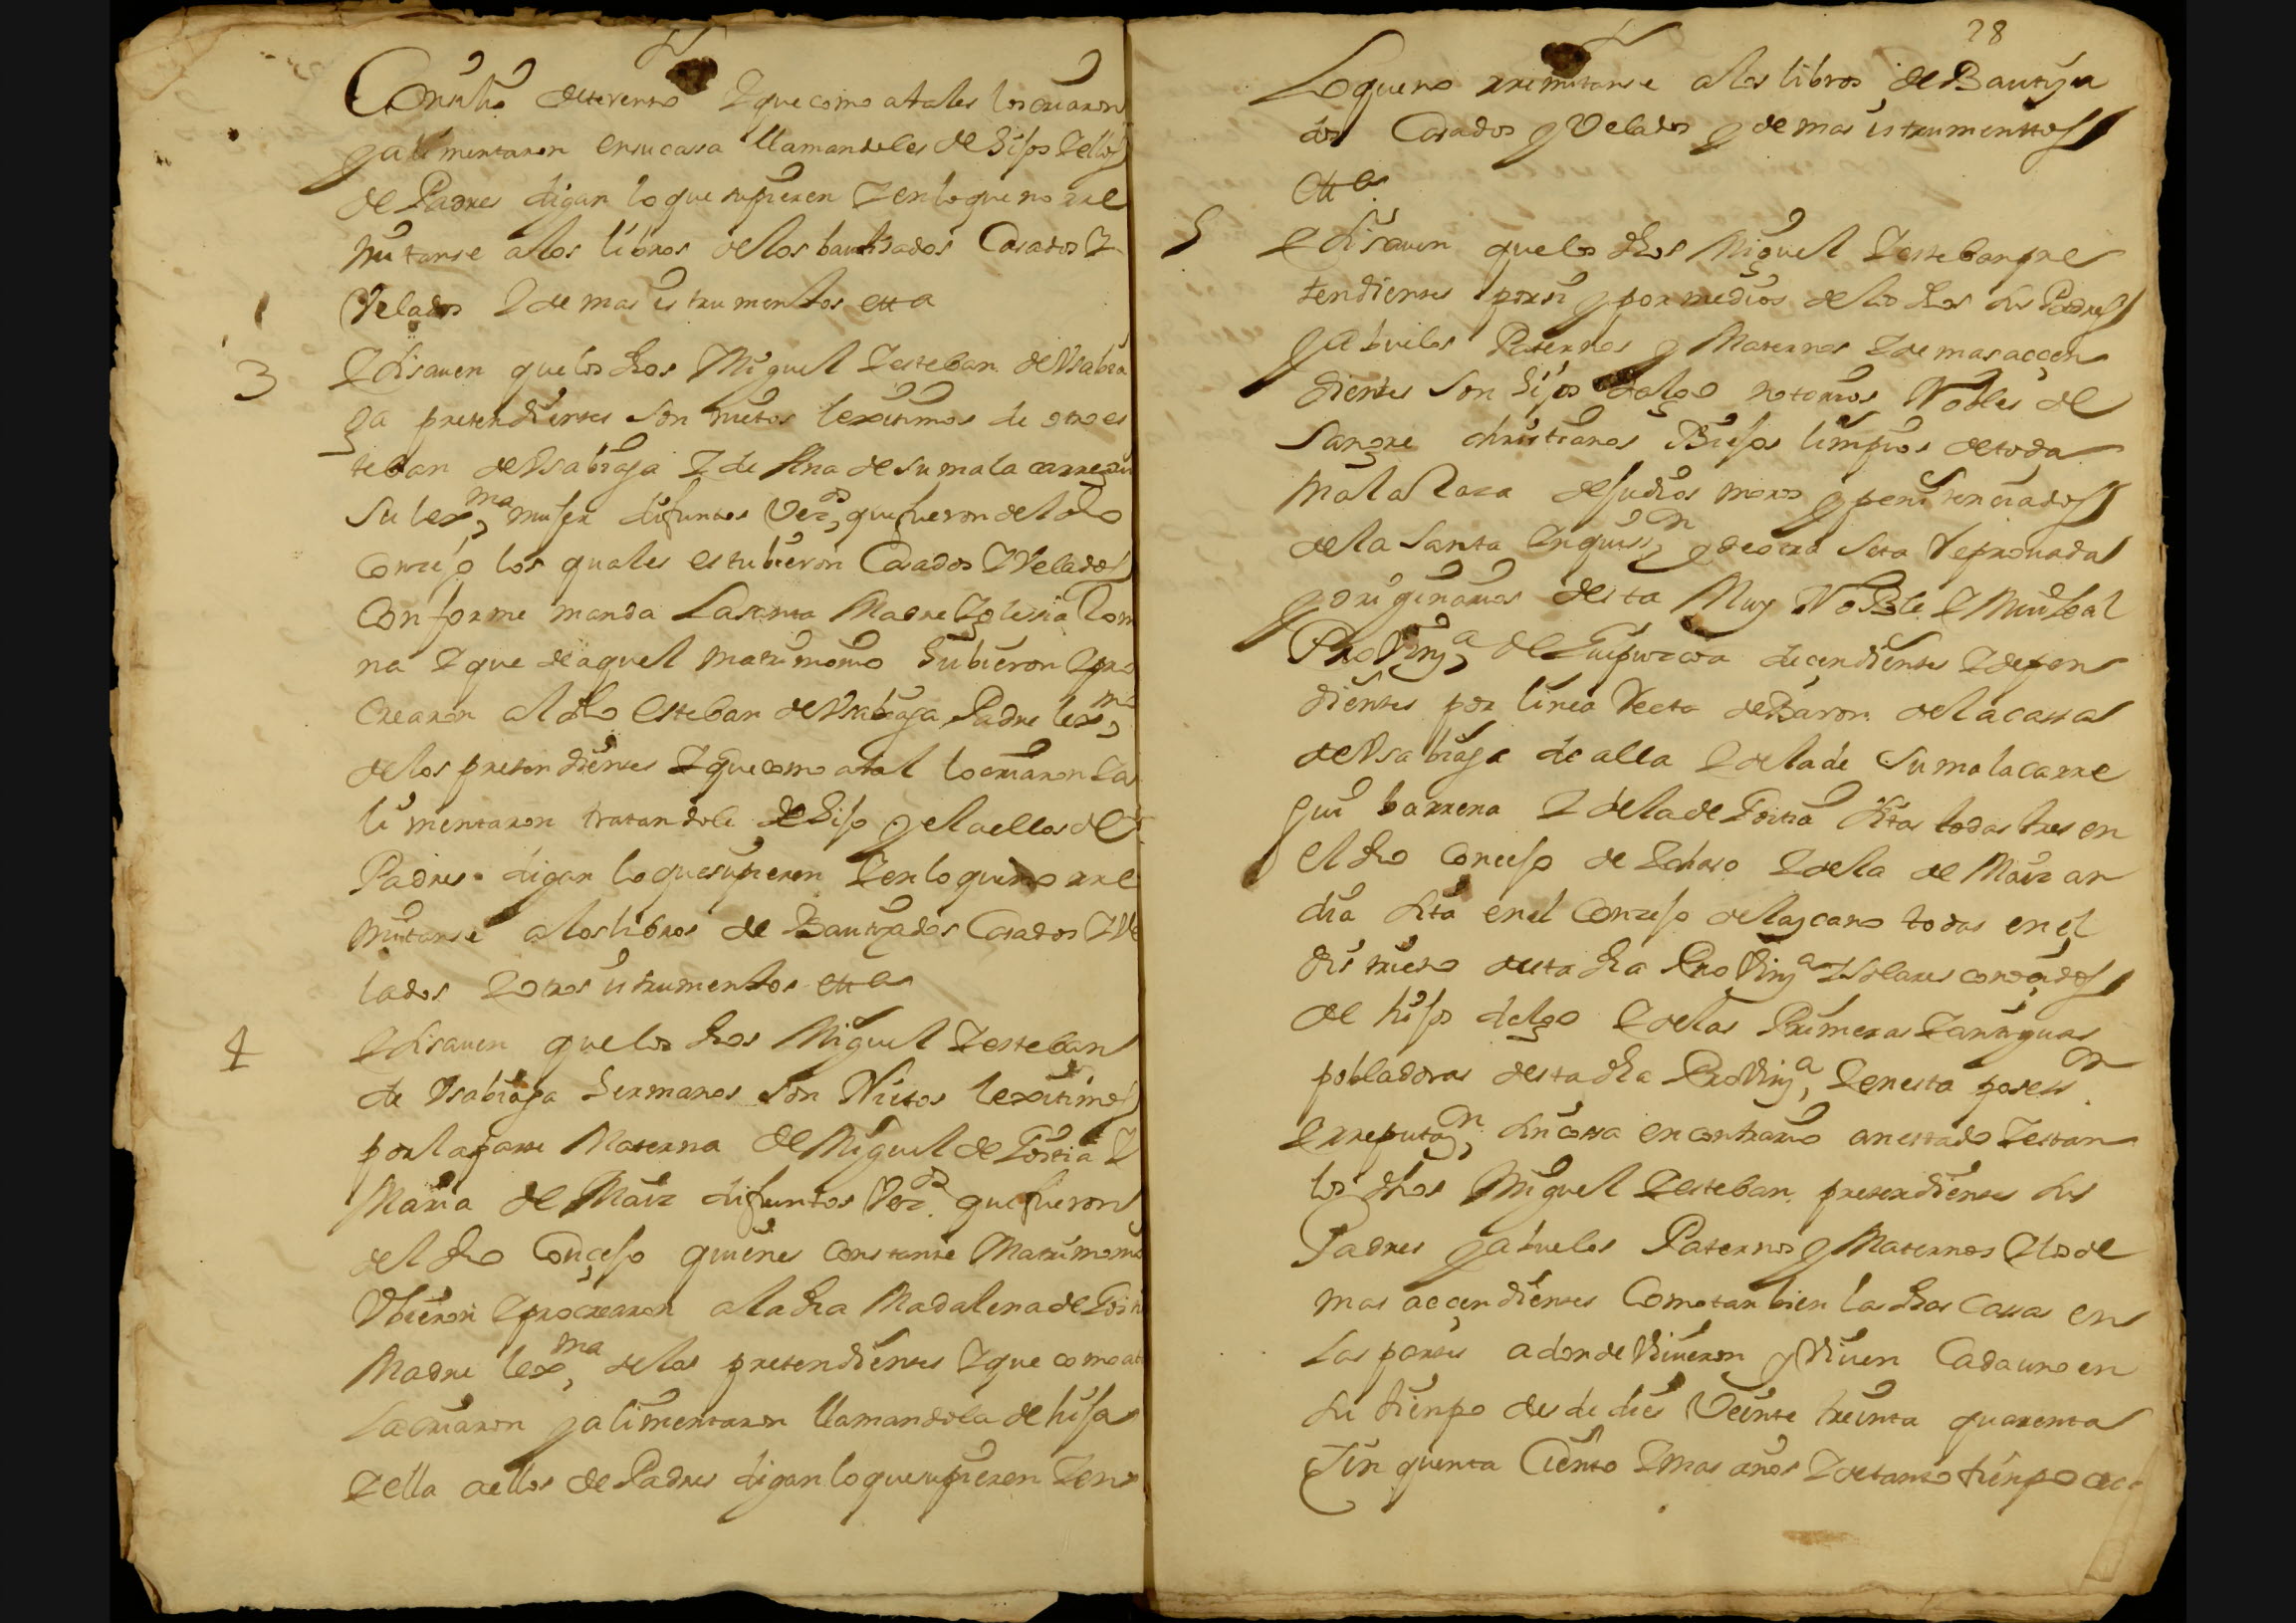 Consulio deterento Y que como atales los criaron
y alimentaron en su cassa llamandoles de Hijos Y ellos
de Padres digan lo que supieren Y en lo que no rre
mitanse a los libros de los bautisados Casados Y
Velados Y de mas istrumentos etta
3 Y si sauen que los dhos Miguel Y esteban de Vsabia
ga pretendientes son nietos lexitimos de otro es
teban de Vsabiaga Y de Ana de Sumalacarregui
su lex.ma muger difuntos Vez.os que fueron del dho
Concejo los quales estubieron Casados Y Velados
Conforme manda La santa Madre Yglesia Rom
na Y que de aquel matrimonio hubieron Y pro
crearon al dho Esteban de Vsabiaga Padre lex.mo
de los pretendientes Y que como a tal lo criaron Y a
limentaron tratandole de Hijo y el a ellos de
Padres digan lo que supieren Y en lo que no rre
mitanse a los libros de Bautizados Casados Y Ve
lados Y otros istrumentos etta
4 Y si sauen que los dhos Miguel Y esteban
de Vsabiaga hermanos son Nietos lexitimos
por la parte Materna de Miguel de Goitia Y
Maria de Maiz difuntos Vez.os que fueron
del dho Concejo quienes constante Matrimonio
Vbieron Y procrearon a la dha Madalena de Goiti
Madre lex.ma de los pretendientes Y que como at
La criaron y alimentaron llamandola de hija
Y ella a ellos de Padres digan lo que supieren Y en
28
Lo que no rremitanse a los libros de Bautiza
dos Casados y Velados y de mas istrumenttos
etta
5 Y si sauen que los dhos Miguel Y esteban pre
tendientes por si y por medios de los dhos sus Padres
y abuelos Paternos y Maternos Y de mas acçen
dientes son hijos dalgo notorios Nobles de
Sangre christianos Biejos limpios de toda
Mala Raza de Judios moros y penitenciados
de la Santa Inquiss.on y de otra seta Reprouada
y originarios desta Muy Noble Y Muy Leal
Provinj.a de Guipuzcoa deçendientes Y depen
dientes por linea Recta de Baron de la cassa
de Vsabiaga de alla Y de la de Sumalacarre
gui barrena Y de la de Goitia sitas todas tres en
el dho concejo de Ydiaso Y de la de Maiz an
dia sita en el Concejo de Lazcano todas en el
distrito desta dha Provinj.a Y solares conoçidos
de hijos dalgo Y de las Primeras Y antiguas
pobladoras desta dha Provinj.a, Y en esta posess.on
Y rreputaz.on sin cossa en contrario an estado Y estan
los dhos Miguel Y esteban pretendientes sus
Padres y abuelos Paternos y Maternos Y los de
mas acçendientes Como tanbien las dhas Cassas en
Las partes adonde Viuieron y Viuen Cada uno en
su tienpo desde dies Veinte treinta quarenta
Çinquenta Ciento Y mas años Y de tanto tienpo aca